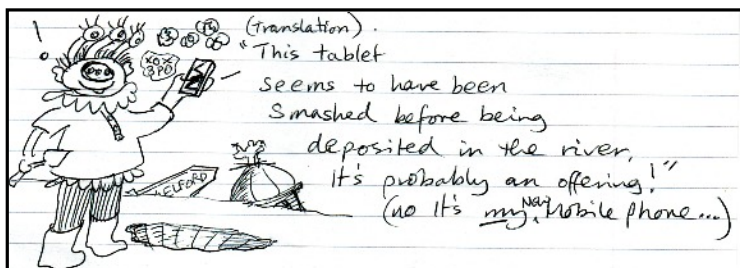 !
(translation).
XOX
3PO
"This tablet
seems to have been
Smashed before being
deposited in the river,
It's probably an offering!"
(no It's my New Mobile phone...)
ELFORD